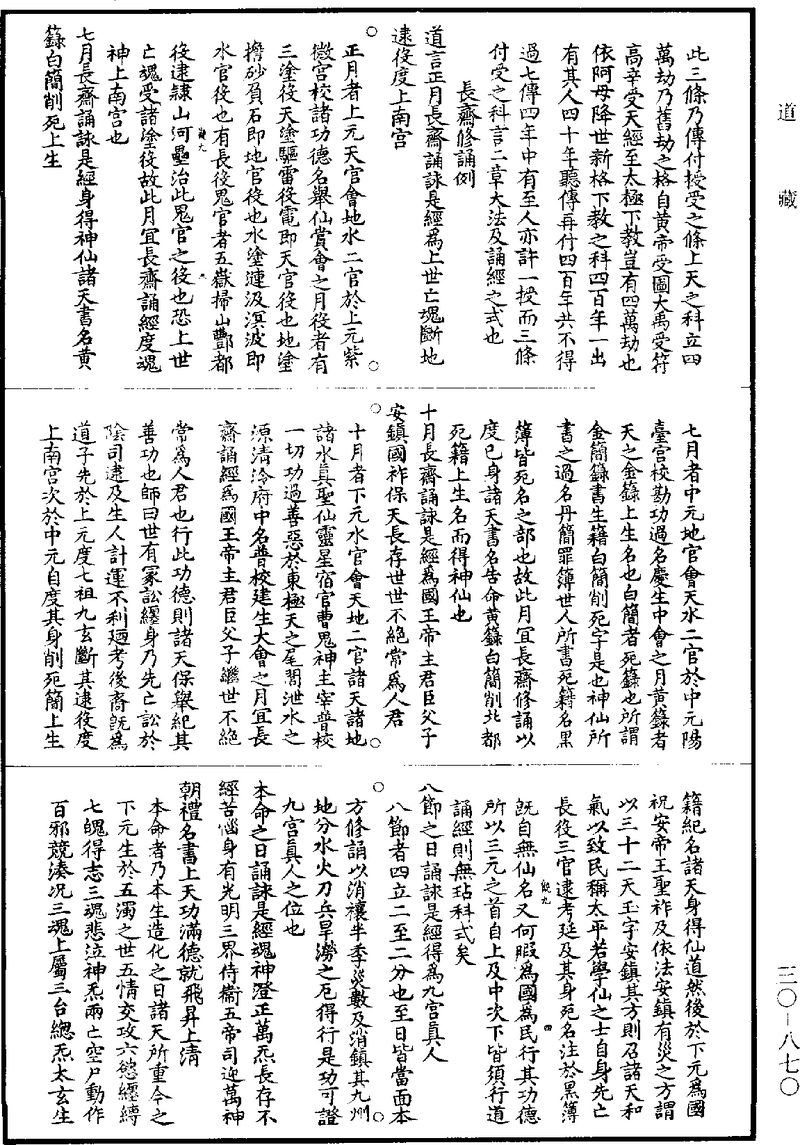 道藏
三〇—八七〇
此三條乃傳付授受之條上天之科立四
萬劫乃舊劫之格自黃帝受圖大禹受符
高辛受天經至太極下教豈有四萬劫也
依阿母降世新格下教之科四百年一出
有其人四十年聽傳再付四百年共不得
過七傳四年中有至人亦許一授而三條
付受之科言二章大法及誦經之式也
長齋修誦例
道言正月長齋誦詠是經爲上世亡魂斷地
逮役度上南宮
正月者上元天官會地水二官於上元紫
微宮校諸功德名舉仙賞會之月役者有
三塗役天塗驅雷役電即天官役也地塗
擔砂負石即地官役也水塗漣汲溟波即
水官役也有長役鬼官者五嶽掃山酆都
役逮隸山河壘治此鬼官之役也恐上世
亡魂受諸塗役故此月宜長齋誦經度魂
神上南宮也
七月長齋誦詠是經身得神仙諸天書名黃
籙白簡削死上生
七月者中元地官會天水二官於中元陽
臺宮校勘功過名慶生中會之月黃籙者
天之金籙上生名也白簡者死籙也所謂
金簡籙書生籍白簡削死字是也神仙所
書之過名丹簡罪簿世人所書死籍名黑
簿皆死名之部也故此月宜長齋修誦以
度已身諸天書名告命黃籙白簡削北都
死籍上生名而得神仙也
十月長齋誦詠是經爲國王帝主君臣父子
安鎮國祚保天長存世世不絕常爲人君
十月者下元水官會天地二官諸天諸地
諸水真聖仙靈星宿官曹鬼神主宰普校
一切功過善惡於東極天之尾閭泄水之
源清泠府中名普校建生大會之月宜長
齋誦經爲國王帝主君臣父子繼世不絕
常爲人君也行此功德則諸天保舉紀其
善功也師曰世有冢訟纏身乃先亡訟於
陰司逮及生人計運不利廻考後裔既爲
道子先於上元度七祖九玄斷其逮役度
上南宮次於中元自度其身削死簡上生
籍紀名諸天身得仙道然後於下元爲國
祝安帝王聖祚及依法安鎮有災之方謂
以三十二天玉字安鎮其方則召諸天和
氣以致民稱太平若學仙之士自身先亡
長役三官逮考延及其身死名注於黑簿
既自無仙名又何暇爲國爲民行其功德
所以三元之首自上及中次下皆須行道
誦經則無玷科式矣
八節之日誦詠是經得爲九宮真人
八節者四立二至二分也至日皆當面本
方修誦以消禳半季災數及消鎮其九州
地分水火刀兵旱澇之厄得行是功可證
九宮真人之位也
本命之日誦詠是經魂神澄正萬炁長存不
經苦惱身有光明三界侍衞五帝司迎萬神
朝禮名書上天功滿德就飛昇上清
本命者乃本生造化之日諸天所重今之
下元生於五濁之世五情交攻六慾纏縛
七魄得志三魂悲泣神炁兩亡空尸動作
百邪競湊况三魂上屬三台總炁太玄生